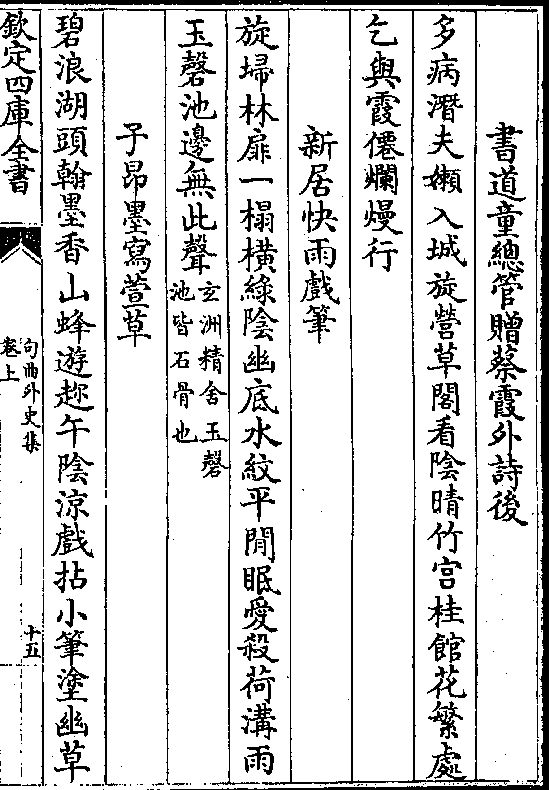 書道童總管贈蔡霞外詩後
多病潛夫嬾入城旋營草閣看陰晴竹宫桂館花繁處
乞與霞僊爛熳行
新居快雨戲筆
旋埽林扉一榻横綠陰幽底水紋平閒眠愛殺荷溝雨
玉磬池邊無此聲玄洲精舍玉磬
池皆石骨也
子昂墨寫萱草
碧浪湖頭翰墨香山蜂遊趂午陰涼戲拈小筆塗幽草
欽定四庫全書
句曲外史集
卷上
十五